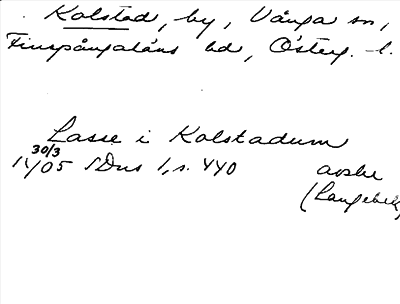 Kolstad, by, Vånga sn,
Finspångaläns hd, Österg. l.
Lasse i Kolstadum
30/3
1405 SDns 1, s. 440 avskr
(Langebek)